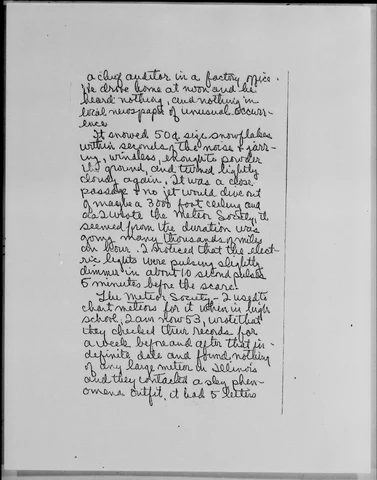 a chief auditor in a factory office.
He drove home at noon and he
heard nothing, and nothing in
local newspaper of unusual occurr-
ence
It snowed 50¢ size snowflakes
within seconds of the noise + jarr-
ing, windless, enough to powder
the ground, and turned lightly
cloudy again. It was a close
passage + no jet would dive out
of maybe a 3000 foot ceiling and
as I wrote the Meteor Society, it
seemed from the duration was
going many thousands of miles
an hour. I noticed that the elect-
ric lights were pulsing slightly
dimmer in about 10 second pulses
5 minutes before the scare!
The Meteor Society - I used to
chart meteors for it when in high
school, I am now 53, wrote that
they checked their records for
a week before and after that in-
definite date and found nothing
of any large meteor in Illinois
and they contacted a sky phen-
omena outfit, it had 5 letters